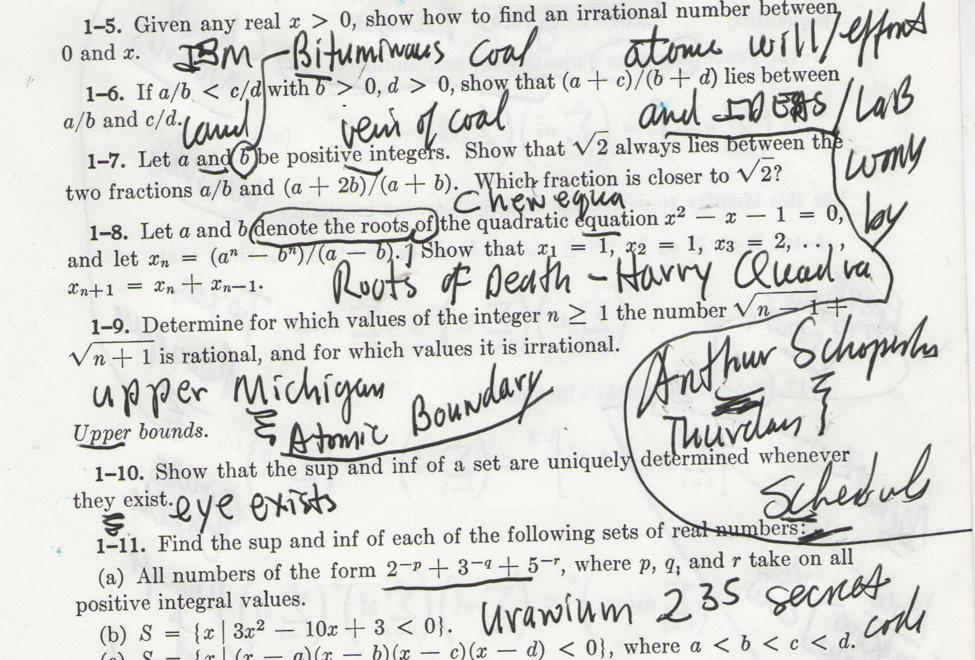 1–5. Given any real x > 0, show how to find an irrational number between
0 and x. IBM Bituminous coal atomic will/effort
1–6. If a/b < c/d with b > 0, d > 0, show that (a + c)/(b + d) lies between
a/b and c/d. (and vein of coal and IDEAS / LAB
1–7. Let a and b be positive integers. Show that √2 always lies between the
two fractions a/b and (a + 2b)/(a + b). Which fraction is closer to √2?
works
Chew equa
1–8. Let a and b denote the roots of the quadratic equation x² − x − 1 = 0, by
and let xₙ = (aⁿ − bⁿ)/(a − b). Show that x₁ = 1, x₂ = 1, x₃ = 2, . . . ,
xₙ₊₁ = xₙ + xₙ₋₁. Roots of Death – Harry Quadra
1–9. Determine for which values of the integer n ≥ 1 the number √n − 1 +
√n + 1 is rational, and for which values it is irrational.
Arthur
upper Michigan
Thursday
Atomic Boundary
Upper bounds.
1–10. Show that the sup and inf of a set are uniquely determined whenever
they exist. eye exists
Schedule
1–11. Find the sup and inf of each of the following sets of real numbers:
(a) All numbers of the form 2⁻ᵖ + 3⁻q + 5⁻ʳ, where p, q, and r take on all
positive integral values. Uranium 235 secret
code
(b) S = {x | 3x² − 10x + 3 < 0}.
(c) S = {x | (x − a)(x − b)(x − c)(x − d) < 0}, where a < b < c < d.